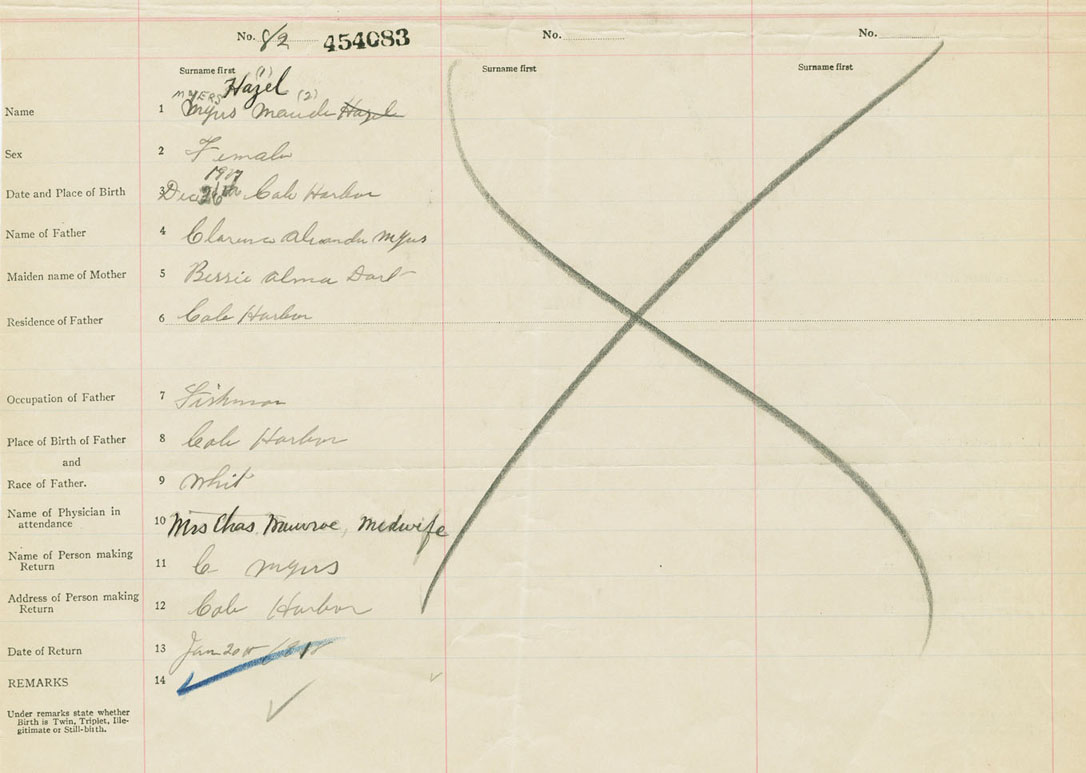 No. 82 454083 No. No.
Surname first (1) Surname first Surname first
MYERS Hazel (2)
Name 1 Myers Maude Hazel
Sex 2 Female
1917
Date and Place of Birth 3 Dec 26th Cole Harbor
Name of Father 4 Clarence Alexander Myers
Maiden name of Mother 5 Bessie Alma Dart
Residence of Father 6 Cole Harbor
Occupation of Father 7 Fishman
Place of Birth of Father 8 Cole Harbor
and
Race of Father. 9 Whit
Name of Physician in
attendance 10 Mrs Chas. Munroe, Medwife
Name of Person making
Return 11 C Myers
Address of Person making
Return 12 Cole Harbor
Date of Return 13 Jan 20th 1918
REMARKS 14
Under remarks state whether
Birth is Twin, Triplet, Ille-
gitimate or Still-birth.